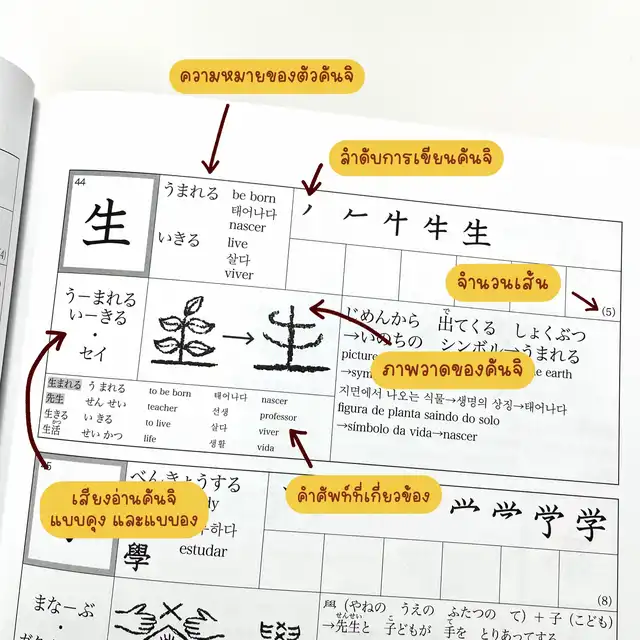 ความหมายของตัวคันจิ
ลำดับการเขียนคันจิ
44
生
うまれる be born
태어나다
nascer
いきる live
살다
viver
生
จำนวนเส้น
(5)
うーまれる
いーきる
・
セイ
→
じめんから 出てくる しょくぶつ
で
→いのちの シンボル→うまれる
picture
the earth
→sym
ภาพวาดของคันจิ
지면에서 나오는 식물→생명의 상징→태어나다
figura de planta saindo do solo
→símbolo da vida→nascer
生まれる うまれる to be born 태어나다 nascer
先生 せんせい teacher 선생 professor
生きる いきる to live 살다 viver
かつ
生活 せいかつ life 생활 vida
คำศัพท์ที่เกี่ยวข้อง
เสียงอ่านคันจิ
แบบคุง และแบบอง
べんきょうする
dy
하다
學 estudar
学
(8)
まなーぶ
・
(やねの うえの ふたつの て)+子(こども)
せんせい こ て
→先生と 子どもが 手を とりあってする